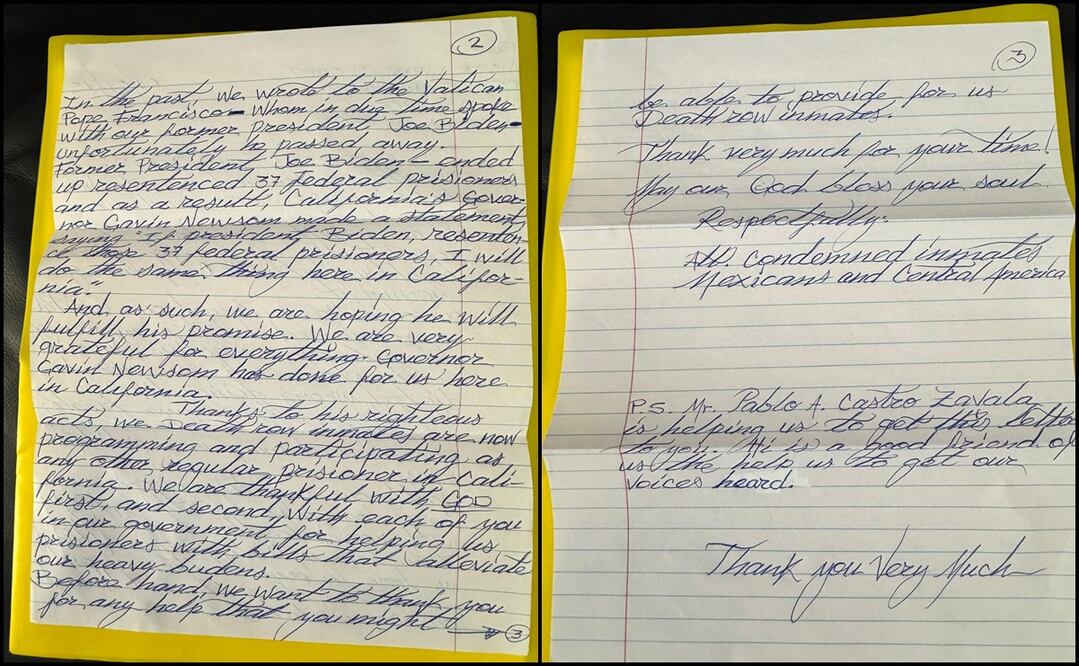 2
In the past, we wrote to the Vatican
Pope Francisco- Whom in due time spoke
with our former president Joe Biden-
unfortunately he passed away.
Former President Joe Biden- ended
up resentenced 37 federal prisioners
and as a result, California's Gover-
nor Gavin Newsom made a statement
saying "If president Biden, resenten-
ce those 37 federal prisioners, I will
do the same thing here in Califor-
nia."
And as such, we are hoping he will
fulfill his promise. We are very
grateful for everything Governor
Gavin Newsom has done for us here
in California.
Thanks to his righteous
acts, we Death row inmates are now
programming and participating as
any other regular prisioner in Cali-
fornia. We are thankful with GOD
first, and second, with each of you
in our government for helping us
prisioners with bills that alleviate
our heavy budens.
Before hand, we want to thank you
for any help that you might → 3
3
be able to provide for us
Death row inmates.
Thank very much for your time!
May our God bless your soul.
Respectfully:
All condemned inmates
Mexicans and Central America
P.S. Mr. Pablo A. Castro Zavala
is helping us to get this letter
to you. Hi is a good friend of
us the help us to get our
voices heard.
Thank you Very Much